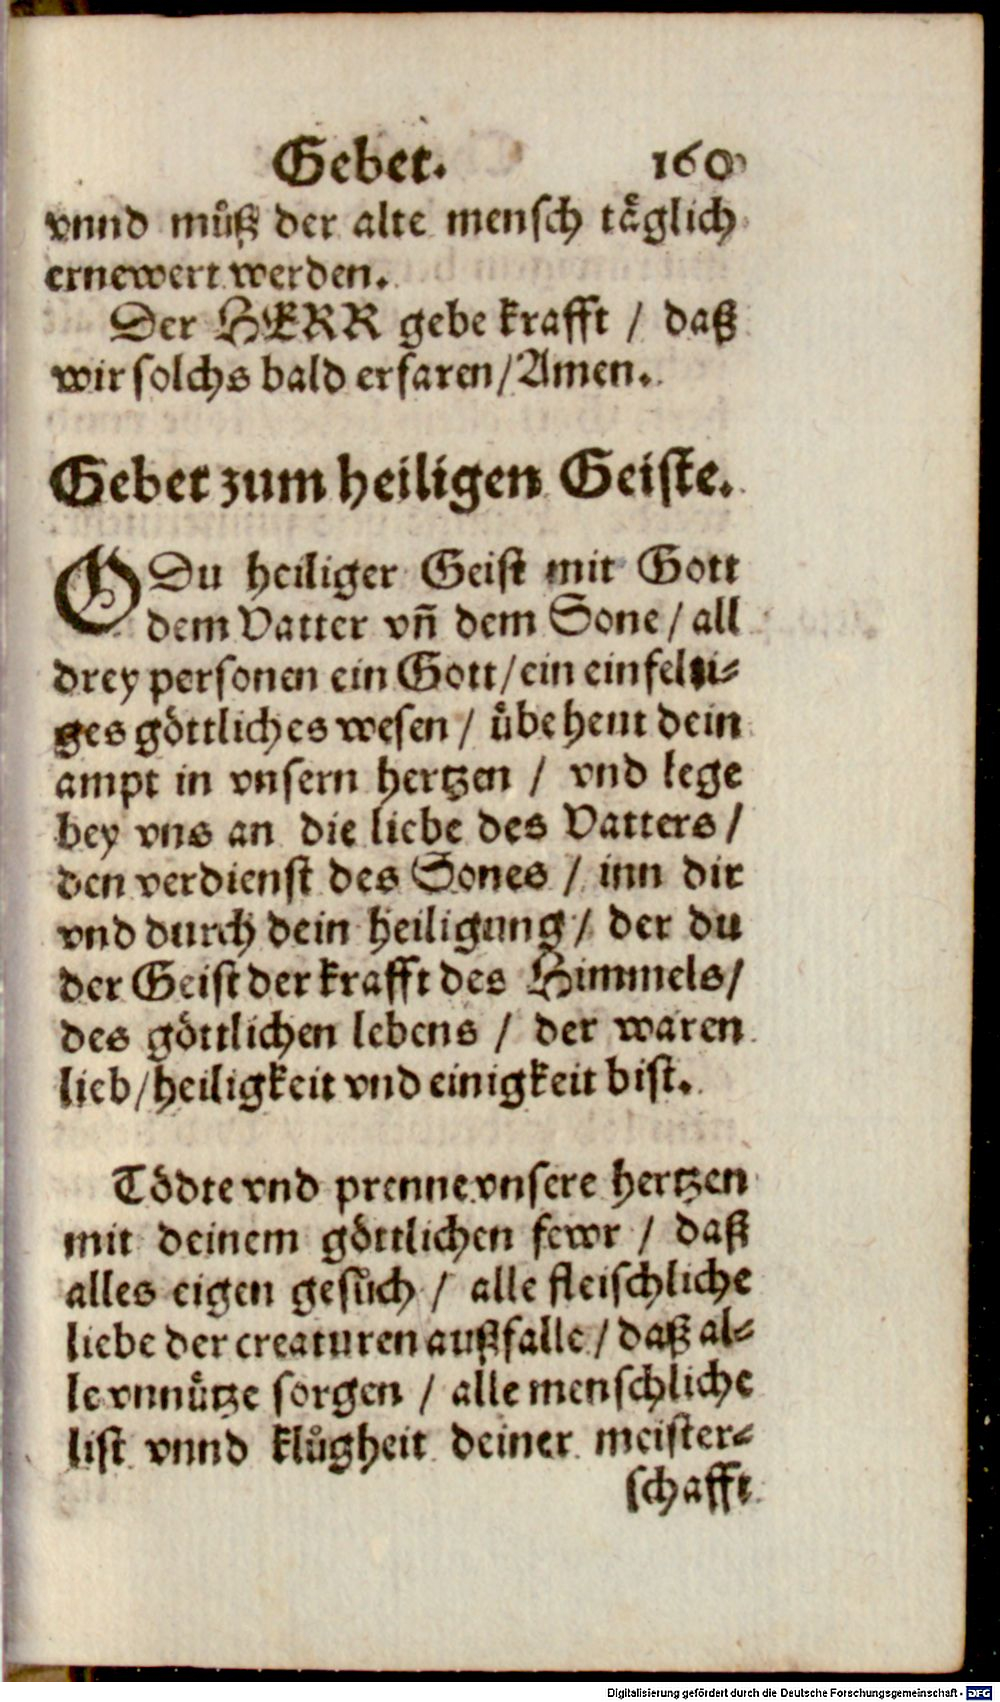 Gebet. 160
vnnd můß der alte mensch täglich
ernewert werden.
Der HERR gebe krafft / daß
wir solchs bald erfaren / Amen.
Gebet zum heiligen Geiste.
O Du heiliger Geist mit Gott
dem Vatter vñ dem Sone / all
drey personen ein Gott / ein einfelti-
ges göttliches wesen / übe heut dein
ampt in vnsern hertzen / vnd lege
bey vns an die liebe des Vatters /
den verdienst des Sones / inn dir
vnd durch dein heiligung / der du
der Geist der krafft des Himmels /
des göttlichen lebens / der waren
lieb / heiligkeit vnd einigkeit bist.
Tödte vnd prenne vnsere hertzen
mit deinem göttlichen fewr / daß
alles eigen gesůch / alle fleischliche
liebe der creaturen außfalle / daß al-
le vnnütze sorgen / alle menschliche
list vnnd klůgheit deiner meister-
schafft
Digitalisierung gefördert durch die Deutsche Forschungsgemeinschaft - DFG